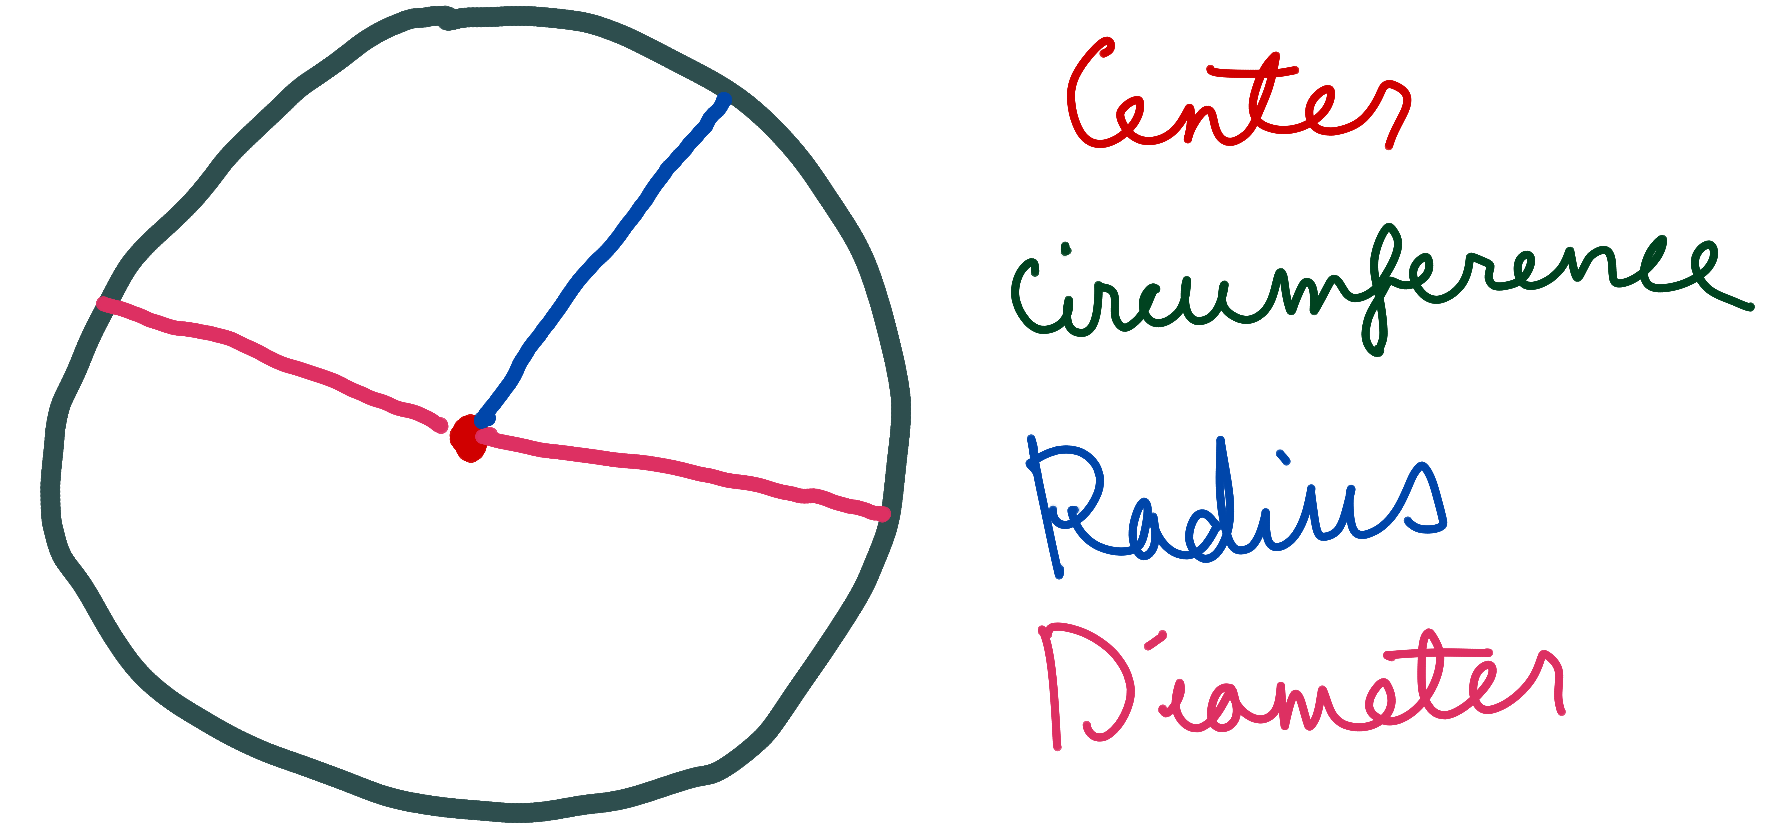 Center
Circumference
Radius
Diameter